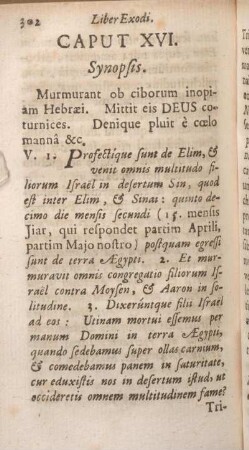 302 Liber Exodi.
CAPUT XVI.
Synopsis.
Murmurant ob ciborum inopi-
am Hebræi. Mittit eis DEUS co-
turnices. Denique pluit è cœlo
mannâ &c.
V. 1. Profectique sunt de Elim, &
venit omnis multitudo fi-
liorum Israël in desertum Sin, quod
est inter Elim, & Sinai: quinto de-
cimo die mensis secundi (15. mensis
Jiar, qui respondet partim Aprili,
partim Majo nostro) postquam egressi
sunt de terra Ægypti. 2. Et mur-
muravit omnis congregatio filiorum Is-
raël contra Moysen, & Aaron in so-
litudine. 3. Dixerúntque filii Israël
ad eos: Utinam mortui essemus per
manum Domini in terra Ægypti,
quando sedebamus super ollas carnium,
& comedebamus panem in saturitate,
cur eduxistis nos in desertum istud, ut
occideretis omnem multitudinem fame?
Tri-